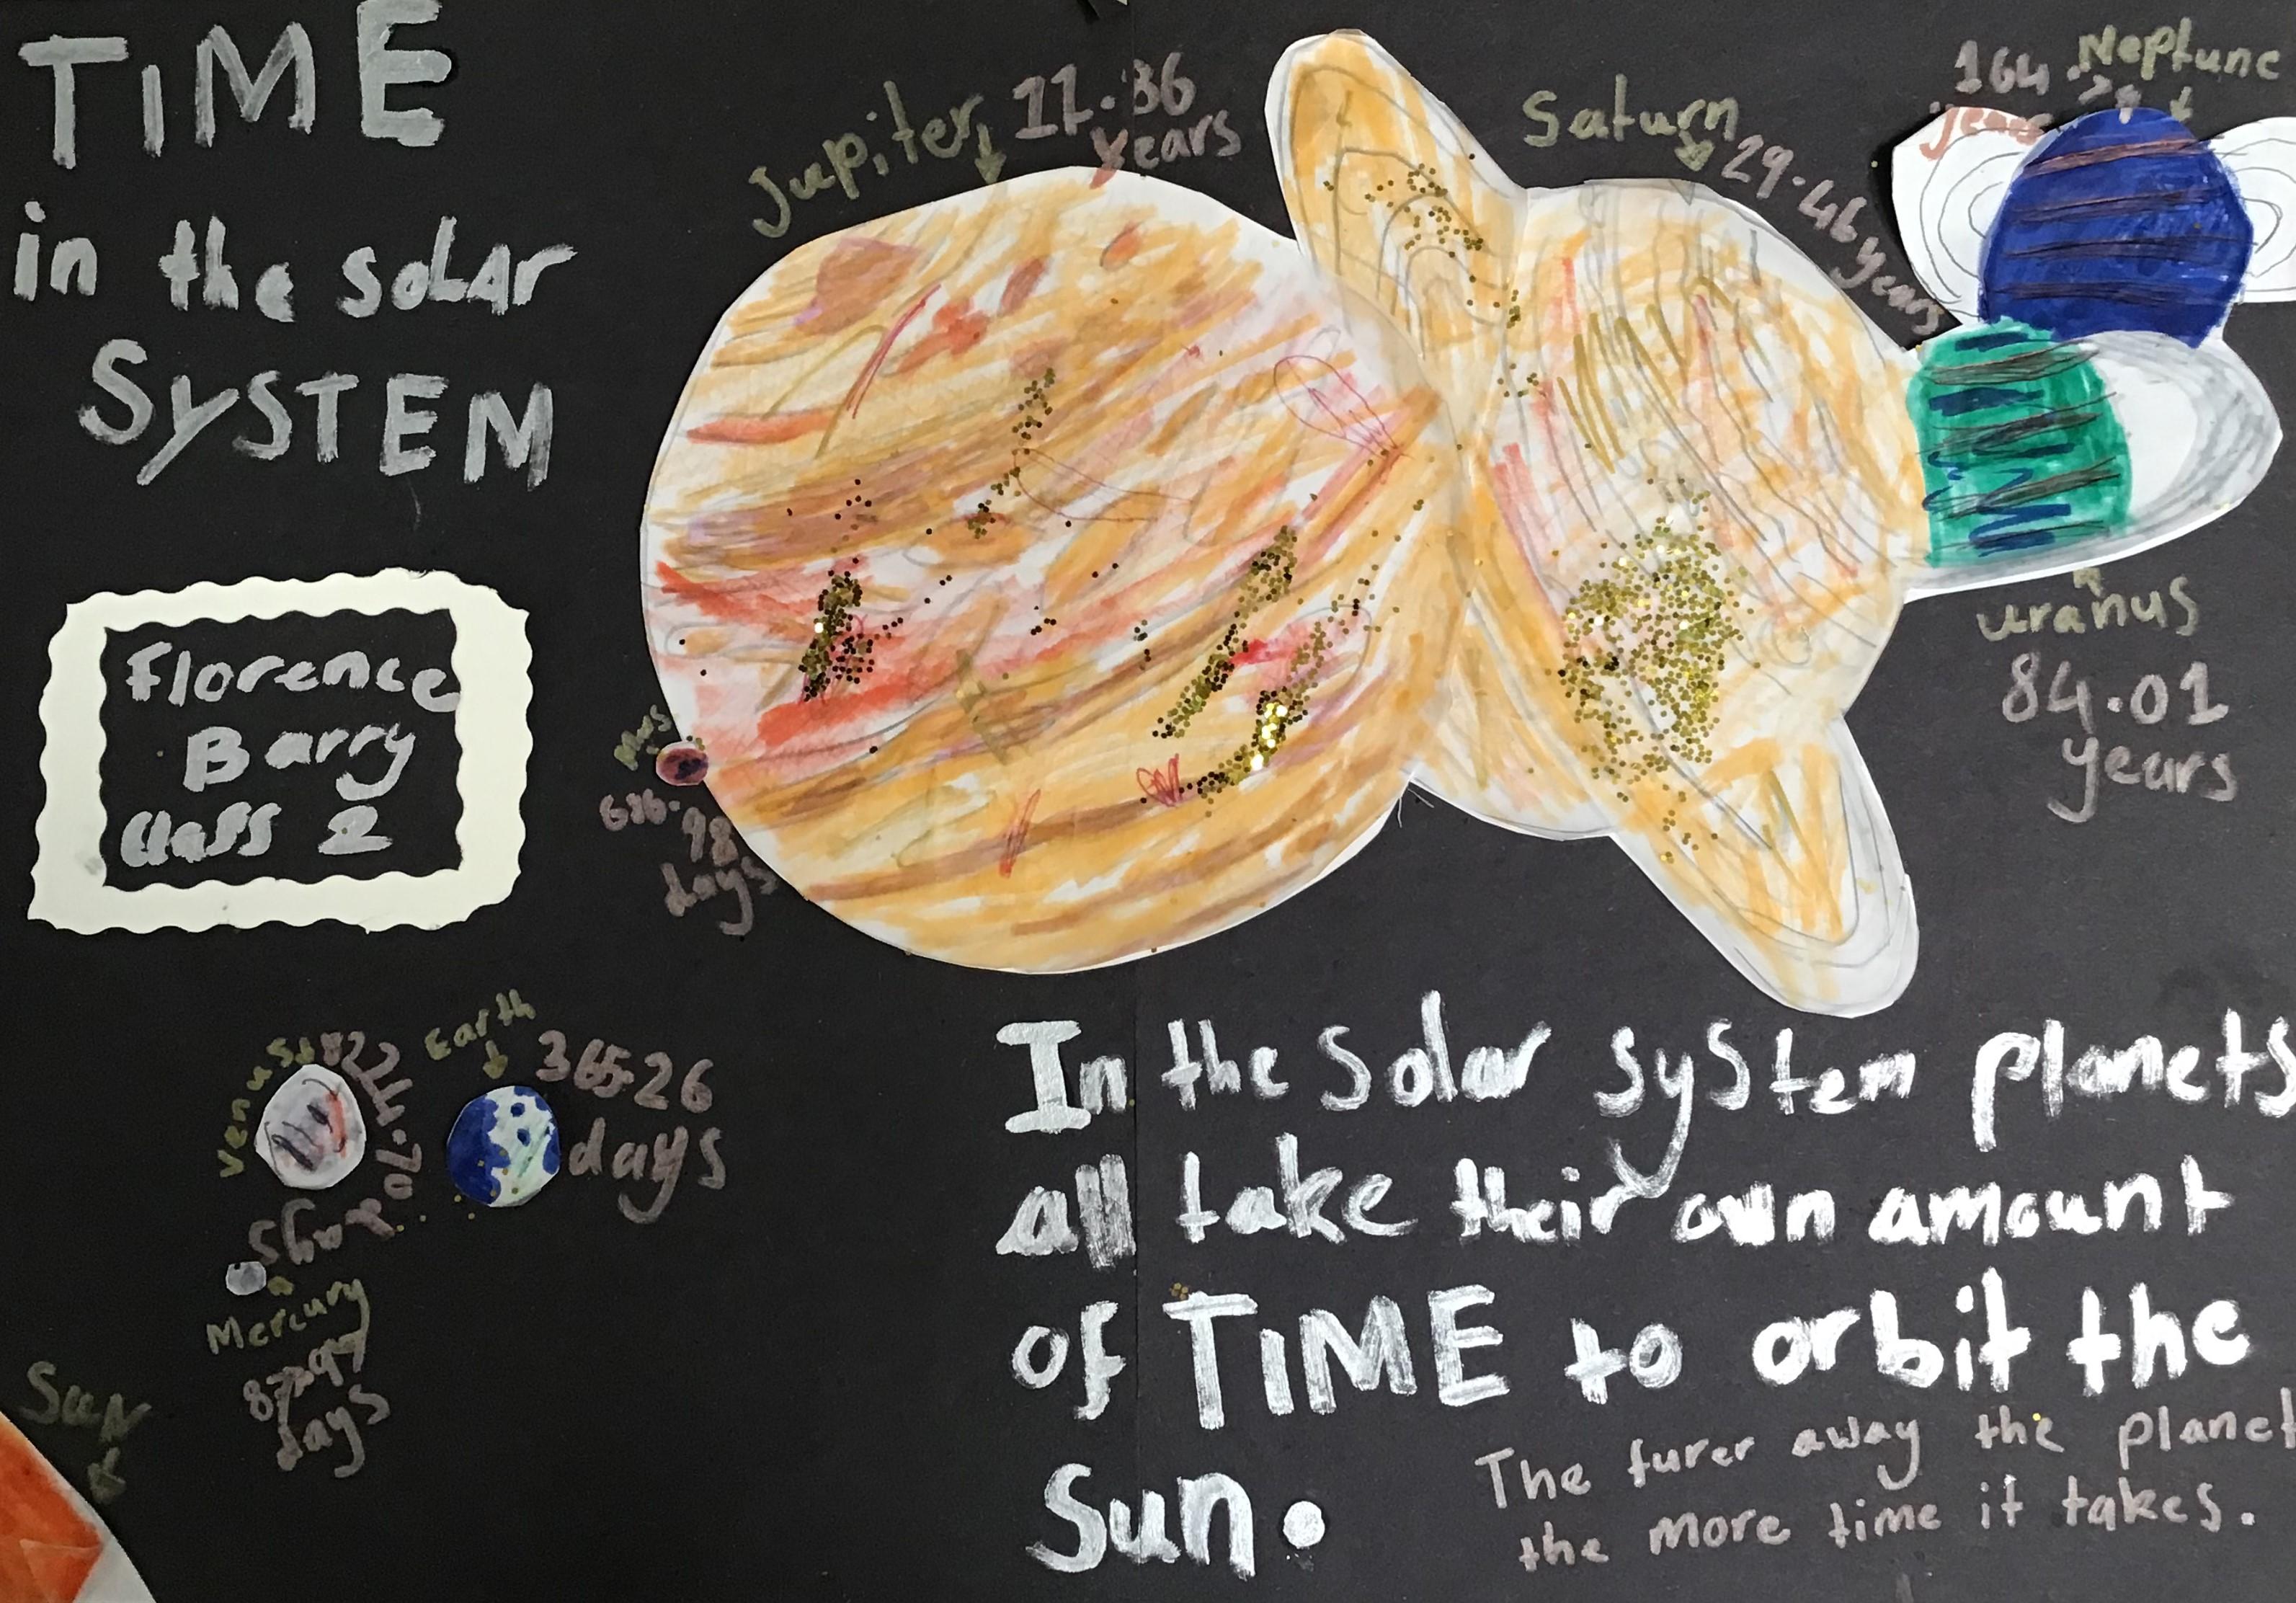 TiME
in the solar
SYSTEM
Jupiter
11.86
years
Saturn
29.46 years
Neptune
164.79
years
uranus
84.01
years
Florence
Barry
class 2
Mars
686.98
days
Venus
224.70
days
Earth
365.26
days
Mercury
87.97
days
Sun
In the solar system planets
all take their own amount
of TiME to orbit the
Sun.
The furer away the planet
the more time it takes.